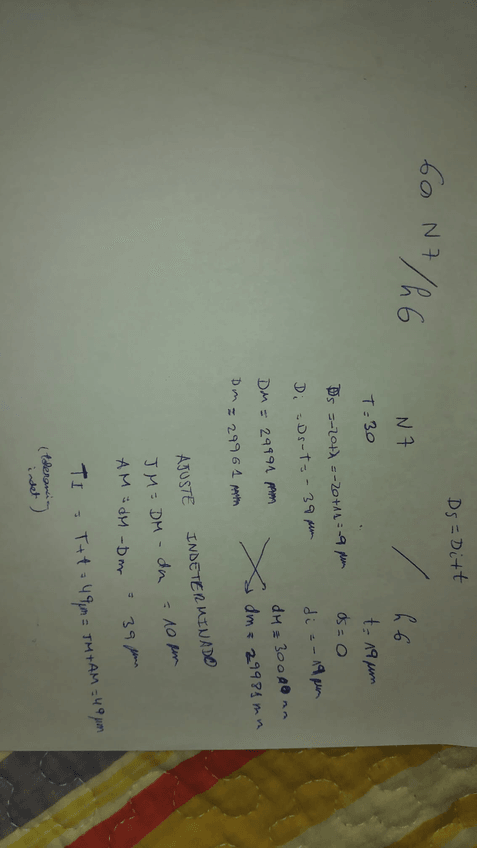 Ds = Di + t
60 N7/h6
N7 / h6
T = 30
t = 19 μm
Ds = -20+Δ = -20+11 = -9 μm
ds = 0
Di = Ds - T = -39 μm
di = -19 μm
DM = 29991 mm
dM = 30000 mm
Dm = 29961 mm
dm = 29981 mm
AJUSTE INDETERMINADO
JM = DM - dm = 10 μm
AM = dM - Dm = 39 μm
TI = T+t = 49 μm = JM+AM = 49 μm
(tolerancia
indet)